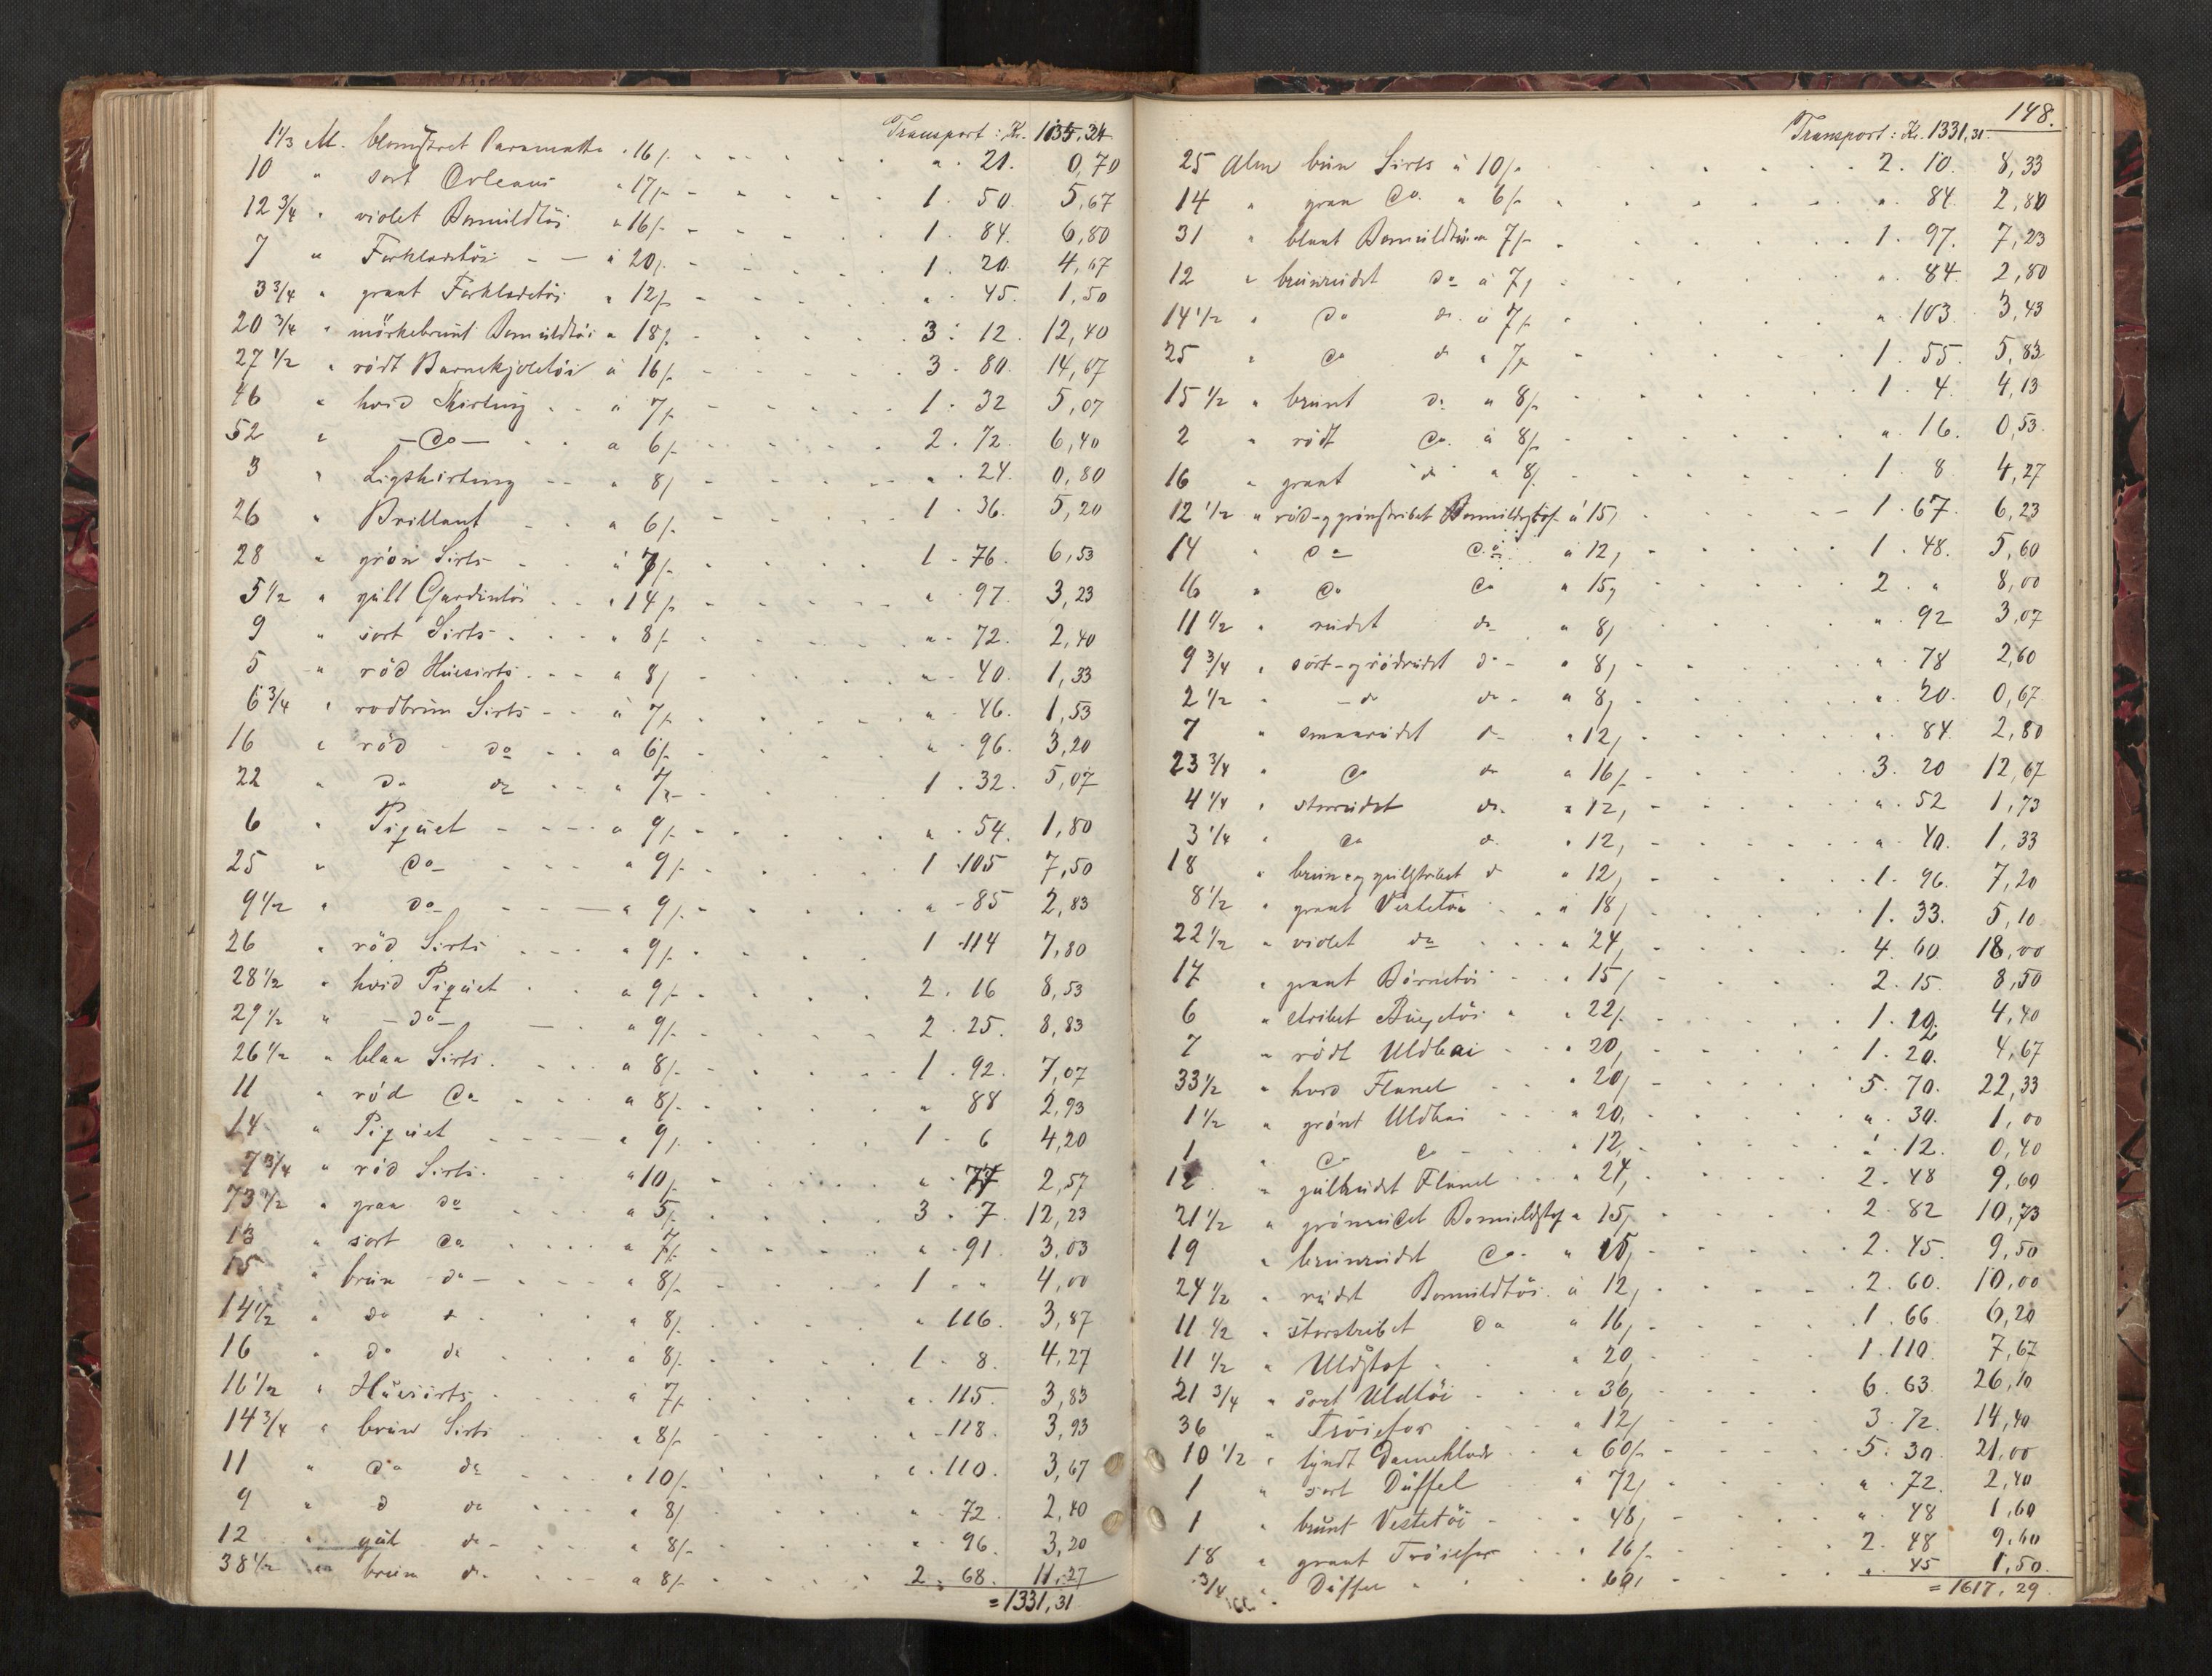 Transport: Kr. 1035,24
1 1/3 M. blomstret Paramatta à 16/- " 21. 0,70
10 " sort Orleans " 17/- 1. 50. 5,67
12 3/4 " violet Bomuldtöi " 16/- 1. 84. 6,80
7 " Forklædetöi à 20/ 1. 20. 4,67
3 3/4 " graat Forklædetöi " 12/- " 45. 1,50
20 3/4 " mörkebrunt Bomuldtöi " 18/- 3. 12. 12,40
27 1/2 " rödt Barnekjoletöi à 16/- 3. 80. 14,67
46 " hvid Skirting à 7/- 1. 32 5,07
52 " — Do — a 6/- 2. 72. 6,40
3 " Ligskirting " 8/ " 24. 0,80
26 " Brillant a 6/- 1. 36. 5,20
28 " grön Sirts à 7/- 1. 76. 6,53
5 1/2 " gult Gardintöi " 14/- " 97. 3,23
9 " sort Sirts " 8/- " 72. 2,40
5 " röd Huesirts a 8/ " 40. 1,33
6 3/4 " rödbrun Sirts à 7/- " 46. 1,53
16 " röd do a 6/- " 96. 3,20
22 " do do " 7/- 1. 32. 5,07
6 " Piquet a 9/- " 54. 1,80
25 " do " 9/- 1. 105 7,50
9 1/2 " do " 9/- " 85 2,83
26 " röd Sirts " 9/- 1. 114 7,80
28 1/2 " hvid Piquet a 9/- 2. 16 8,53
29 1/2 " — do — " 9/- 2. 25. 8,83
26 1/2 " blaa Sirts a 8/- 1. 92. 7,07
11 " röd Do a 8/- " 88 2,93
14 " Piquet " 9/ 1. 6 4,20
7 3/4 " röd Sirts " 10/ " 77 2,57
73 1/2 " graa do a 5/ 3. 7. 12,23
13 " sort Do a 7/- " 91. 3,03
15 " brun do " 8/- 1. " 4,00
14 1/2 " do " 8/- " 116. 3,87
16 " do do a 8/- 1. 8. 4,27
16 1/2 " Huesirts à 7/- " 115. 3,83
14 3/4 " brun Sirts " 8/- " 118. 3,93
11 " Do do " 10/- " 110. 3,67
9 " d do " 8/ " 72. 2,40
12 " gul do " 8/- " 96. 3,20
38 1/2 " brun do a 8/- 2. 68. 11,27
= 1331,31
148.
Transport: Kr. 1331,31
25 Alm brun Sirts à 10/- 2. 10. 8,33
14 " graa Do. " 6/- " 84. 2,80
31 " blaat Bomuldtöi " 7/- 1. 97. 7,23
12 " brunrudet do à 7/ " 84. 2,80
14 1/2 " Do do à 7/- " 103. 3,43
25 " Do do " 7/- 1. 55. 5,83
15 1/2 " brunt do " 8/- 1. 4. 4,13
2 " rödt Do. à 8/- " 16. 0,53
16 " graat do " 8/ 1. 8 4,27
12 1/2 " röd- og grönstribet Bomuldstof à 15/ 1. 67. 6,23
14 " do do à 12/ 1. 48. 5,60
16 " Do Do " 15/ 2. " 8,00
11 1/2 " rudet do " 8/ " 92 3,07
9 3/4 " sort- og rödrudet do " 8/ " 78 2,60
2 1/2 " — do do " 8/ " 20. 0,67
7 " smaarudet do " 12/ " 84. 2,80
23 3/4 " Do do " 16/- 3. 20 12,67
4 1/4 " storrudet do " 12/ " 52 1,73
3 1/4 " Do d. " 12/ " 40. 1,33
18 " brun- og gulstribet d " 12/ 1. 96. 7,20
8 1/2 " graat Vestetöi " 18/ 1. 33. 5,10
22 1/2 " violet do " 24/ 4. 60. 18,00
17 " graat Börnetöi " 15/ 2. 15. 8,50
6 " stribet Bugetöi " 22/- 1. 12. 4,40
7 " rödt Uldbai " 20/ 1. 20. 4,67
33 1/2 " hvid Flanel " 20/ 5. 70. 22,33
1 1/2 " grönt Uldbai " 20/ " 30. 1,00
1 " Do Do " 12/ " 12. 0,40
12 " gulrudet Flanel " 24/ 2. 48 9,60
21 1/2 " grönrudet Bomuldstof " 15/ 2. 82 10,73
19 " brunrudet Do. " 15/ 2. 45. 9,50
24 1/2 " rudet Bomuldtöi à 12/ 2. 60. 10,00
11 1/2 " storstribet Do " 16/ 1. 66. 6,20
11 1/2 " Uldstof " 20/ 1. 110. 7,67
21 3/4 " sort Uldtöi " 36/ 6. 63. 26,10
36 " Tröiefor " 12/ 3. 72. 14,40
10 1/2 " tyndt Dameklæde " 60/- 5. 30. 21,00
1 " sort Düffel " 72/ " 72. 2,40
1 " brunt Vestetöi " 48/ " 48 1,60
18 " graat Tröiefor " 16/- 2. 48 9,60
3/4 " Düffel " 60/ " 45 1,50
= 1617,29